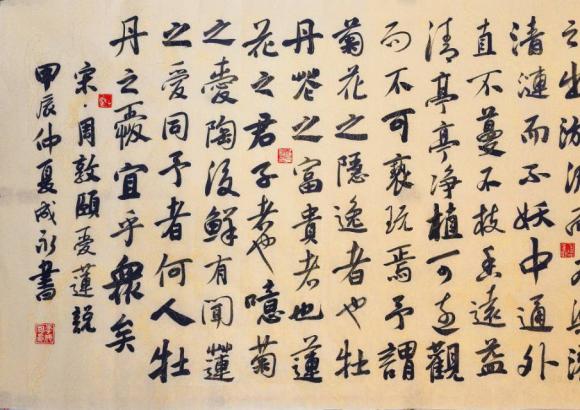 之出淤泥而
清漣而不妖中通外
直不蔓不枝香遠益
清亭亭净植可遠觀
而不可褻玩焉予謂
菊花之隱逸者也牡
丹花之富貴者也蓮
花之君子者也噫菊
之愛陶後鮮有聞蓮
之愛同予者何人牡
丹之愛宜乎衆矣
宋周敦頤愛蓮説
甲辰仲夏成永書